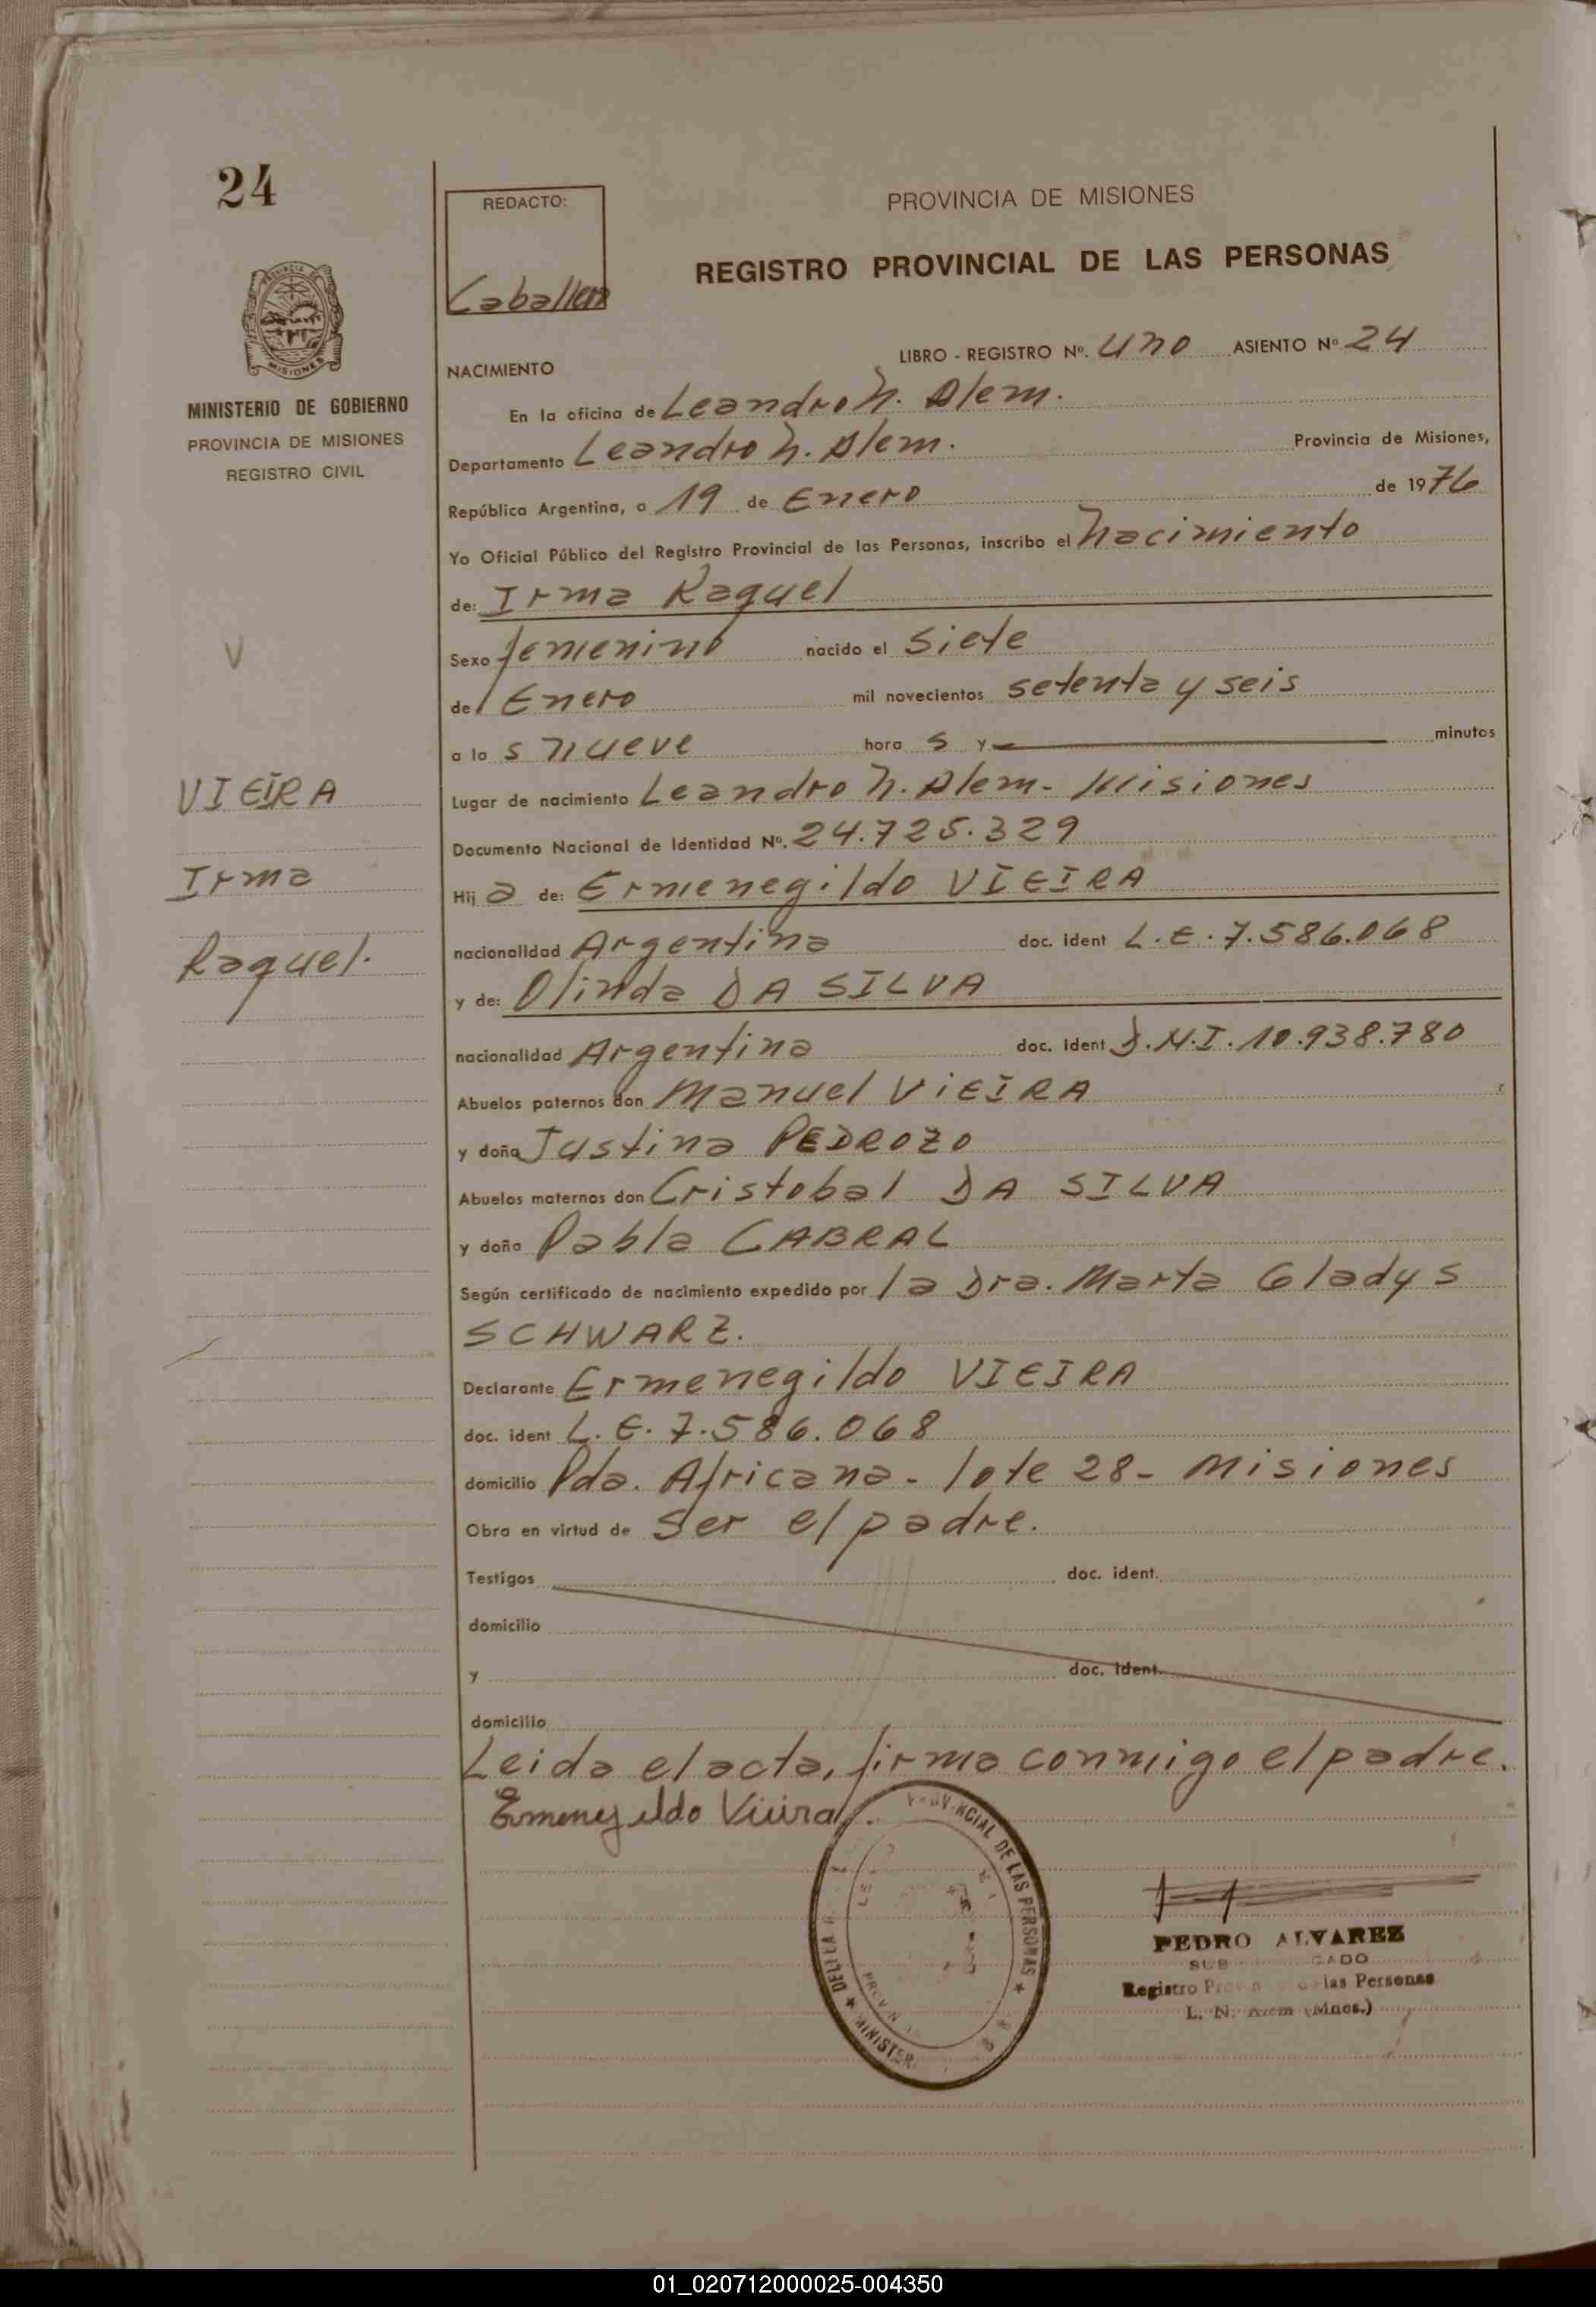 24
REDACTO:
Caballero
PROVINCIA DE MISIONES
REGISTRO PROVINCIAL DE LAS PERSONAS
MISIONES
MINISTERIO DE GOBIERNO
PROVINCIA DE MISIONES
REGISTRO CIVIL
LIBRO - REGISTRO Nº. Uno ASIENTO Nº 24
NACIMIENTO
En la oficina de Leandro N. Alem.
Departamento Leandro N. Alem. Provincia de Misiones,
República Argentina, a 19 de Enero de 1976
Yo Oficial Público del Registro Provincial de las Personas, inscribo el Nacimiento
de: Irma Raquel
V
Sexo femenino nacido el Siete
del Enero mil novecientos setenta y seis
a las nueve horas y minutos
VIEIRA
Irma
Raquel.
Lugar de nacimiento Leandro N. Alem - Misiones
Documento Nacional de Identidad Nº. 24.725.329
Hija de: Ermenegildo VIEIRA
nacionalidad Argentina doc. ident L.E. 7.586.068
y de: Olinda DA SILVA
nacionalidad Argentina doc. ident D.N.I. 10.938.780
Abuelos paternos don Manuel ViEIRA
y doña Justina PEDROZO
Abuelos maternos don Cristobal DA SILVA
y doña Pabla CABRAL
Según certificado de nacimiento expedido por la Dra. Marta Gladys
SCHWARZ.
Declarante Ermenegildo VIEIRA
doc. ident L.E. 7.586.068
domicilio Pda. Africana - lote 28 - Misiones
Obra en virtud de Ser el padre.
Testigos doc. ident.
domicilio
y doc. ident.
domicilio
Leida el acta, firma conmigo el padre.
Emenegildo Vieira
PROVINCIAL DE LAS PERSONAS
PEDRO ALVAREZ
Registro las Personas
L. N. Alem (Mnes.)
01_020712000025-004350